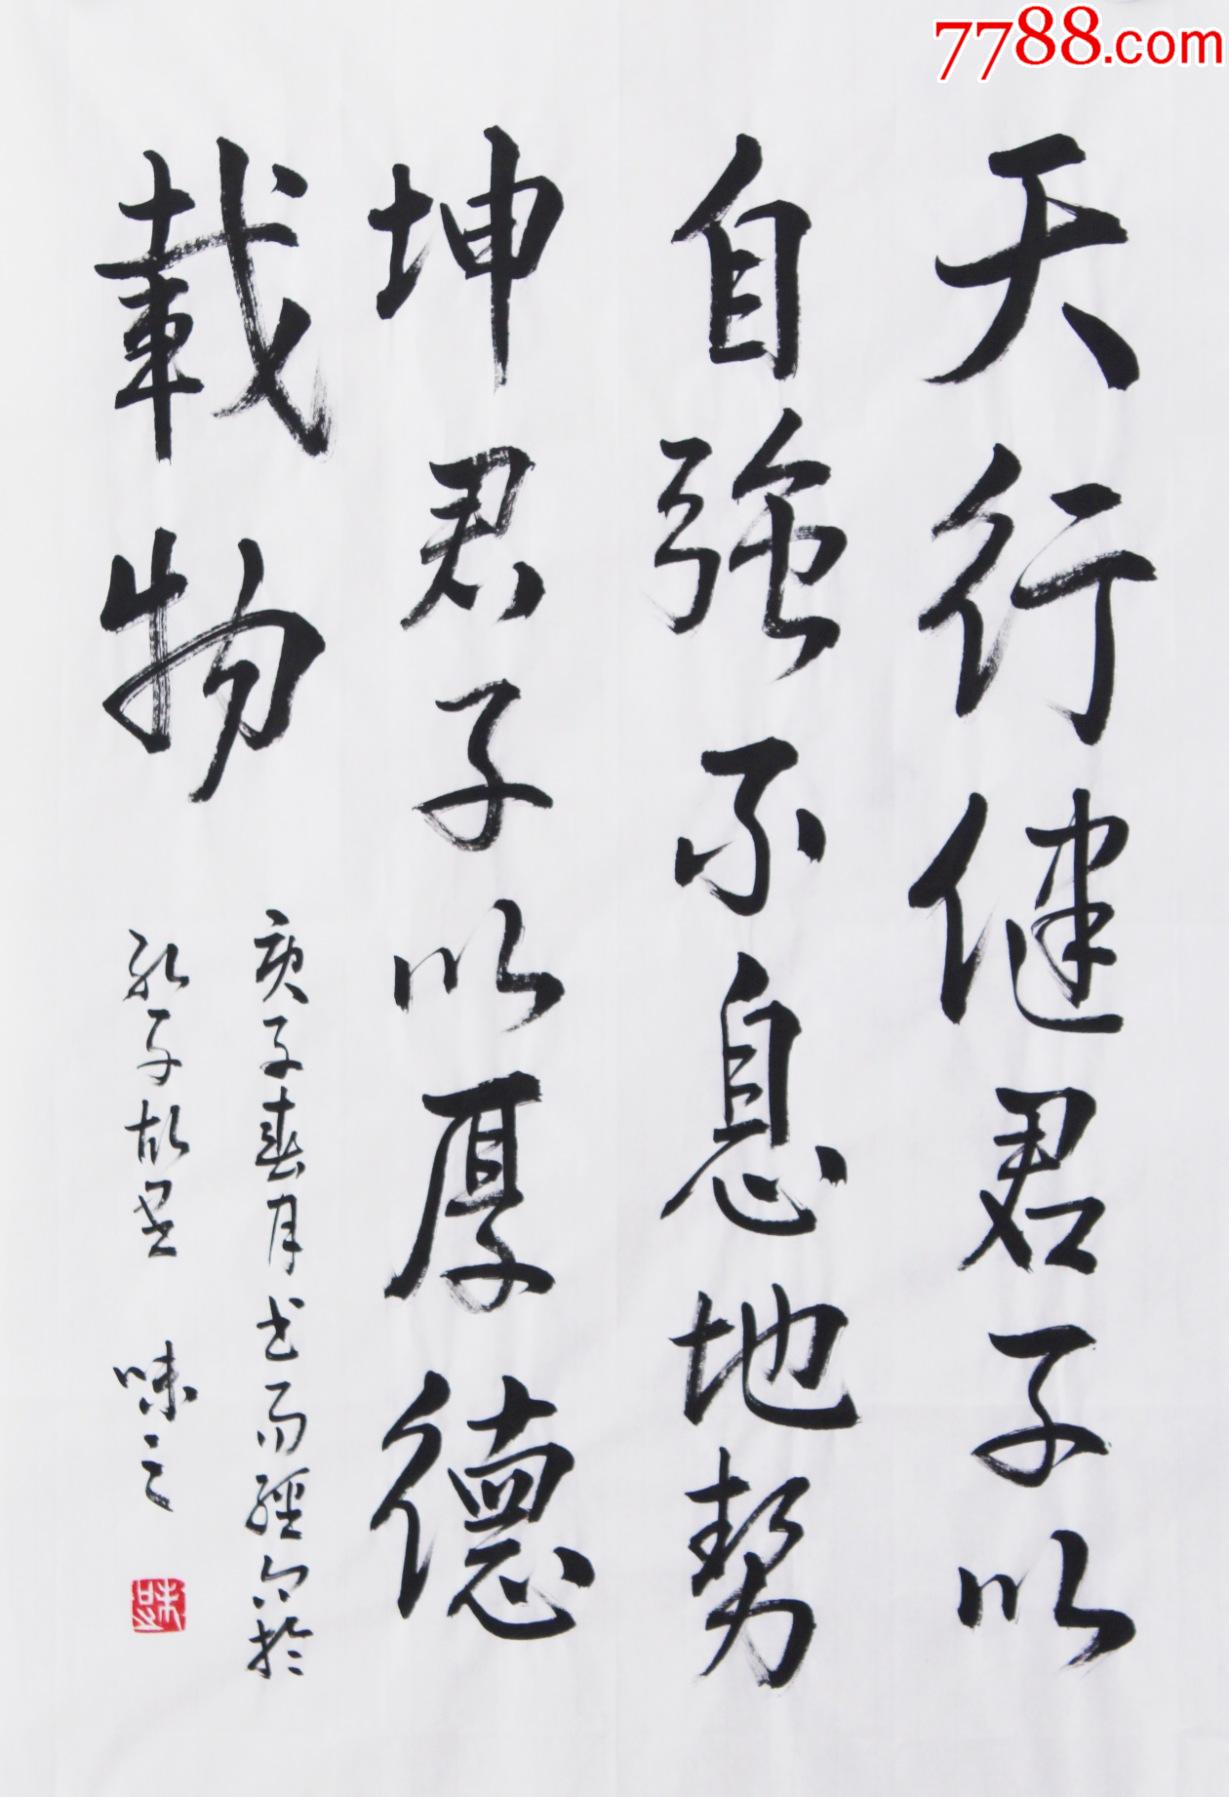 7788.com
天行健君子以
自強不息地勢
坤君子以厚德
載物
庚子春月书易經句於
孔子故里 味之
味之